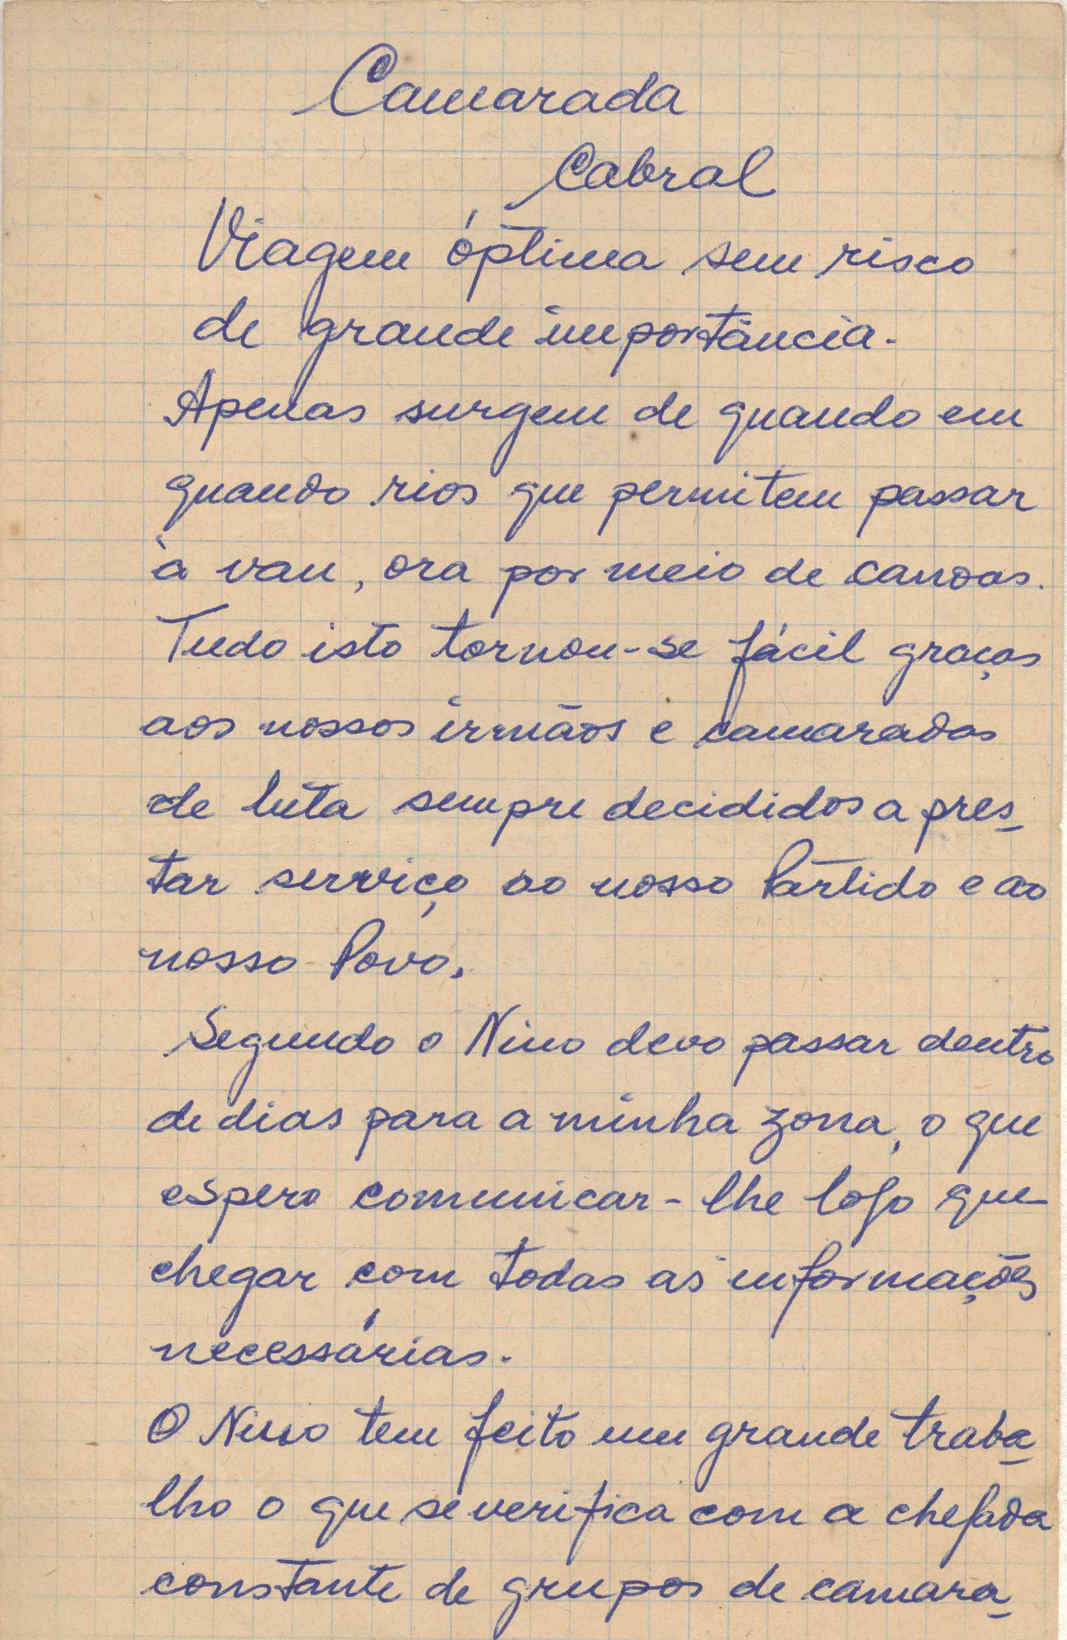 Camarada
Cabral
Viagem óptima sem risco
de grande importância.
Apenas surgem de quando em
quando rios que permitem passar
à vau, ora por meio de canoas.
Tudo isto tornou-se fácil graças
aos nossos irmãos e camaradas
de luta sempre decididos a pres_
tar serviço ao nosso Partido e ao
nosso Povo.
Segundo o Nino devo passar dentro
de dias para a minha zona, o que
espero comunicar-lhe logo que
chegar com todas as informações
necessárias.
O Nino tem feito um grande traba_
lho o que se verifica com a chegada
constante de grupos de camara_